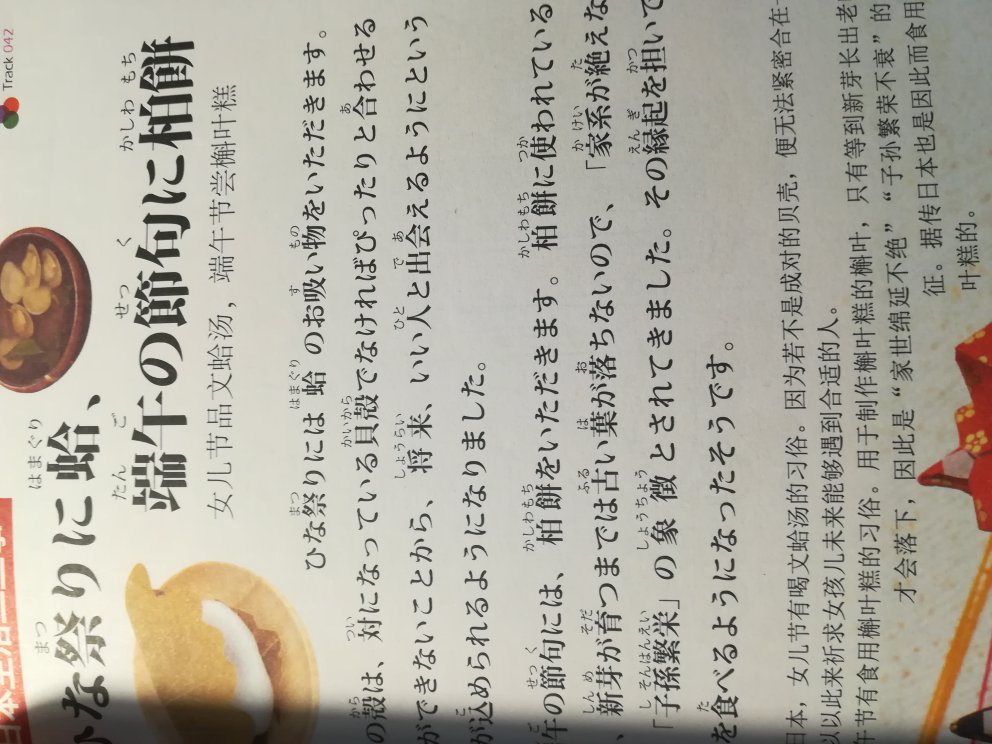 Track 042
な祭りに蛤、
端午の節句に柏餅
女儿节品文蛤汤，端午节尝槲叶糕
ひな祭りには蛤のお吸い物をいただきます。
の殻は、対になっている貝殻でなければぴったりと合わせる
ができないことから、将来、いい人と出会えるようにという
が込められるようになりました。
午の節句には、柏餅をいただきます。柏餅に使われている
、新芽が育つまでは古い葉が落ちないので、「家系が絶えな
「子孫繁栄」の象徴とされてきました。その縁起を担いで
を食べるようになったそうです。
日本，女儿节有喝文蛤汤的习俗。因为若不是成对的贝壳，便无法紧密合在一
以以此来祈求女孩儿未来能够遇到合适的人。
午节有食用槲叶糕的习俗。用于制作槲叶糕的槲叶，只有等到新芽长出老
才会落下，因此是“家世绵延不绝”“子孙繁荣不衰”的
征。据传日本也是因此而食用
叶糕的。